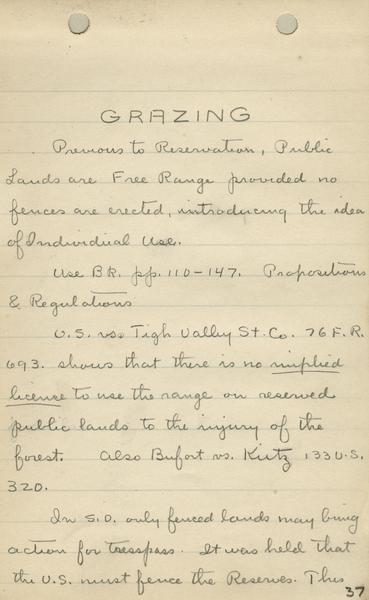 GRAZING
Previous to Reservation, Public
Lands are Free Range provided no
fences are erected, introducing the idea
of Individual Use.
Use B.R. pp. 110-147. Propositions
& Regulations
U.S. vs. Tigh Valley St. Co. 76 F.R.
693. shows that there is no implied
license to use the range on reserved
public lands to the injury of the
forest. Also Bufort vs. Kutz 133 U.S.
320.
In S.D. only fenced lands may bring
action for tresspass. It was held that
the U.S. must fence the Reserves. This
37